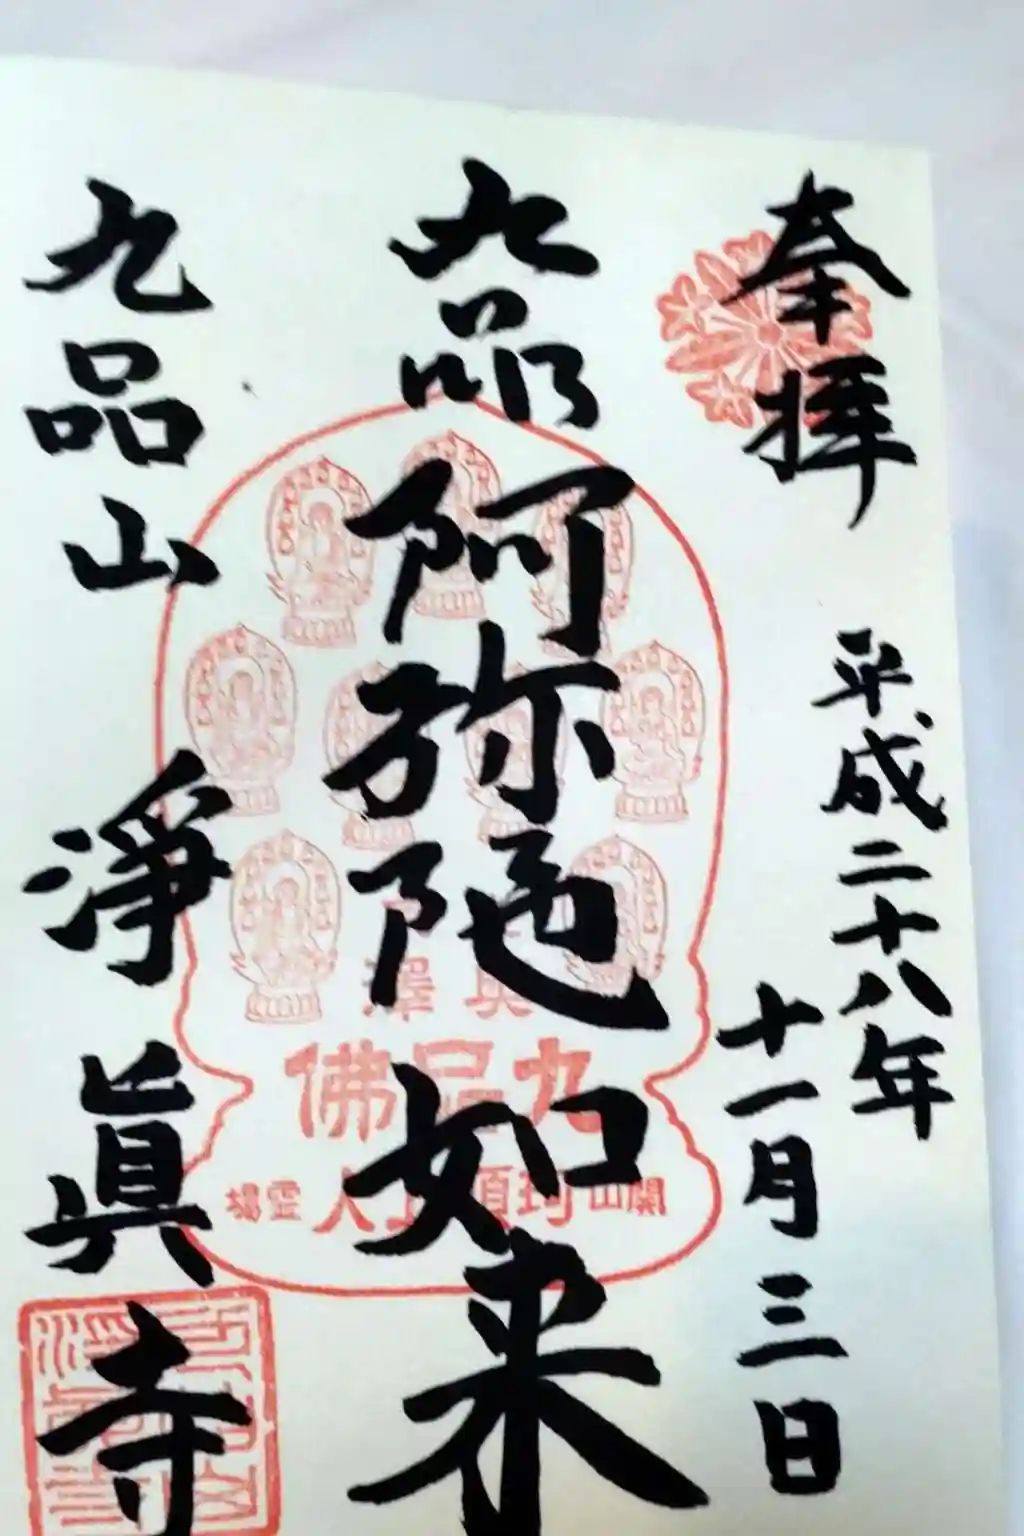 奉拝
平成二十八年
十一月三日
九品阿弥陀如来
九品山
淨眞寺
奥澤
九品佛
開山珂碩上人霊場